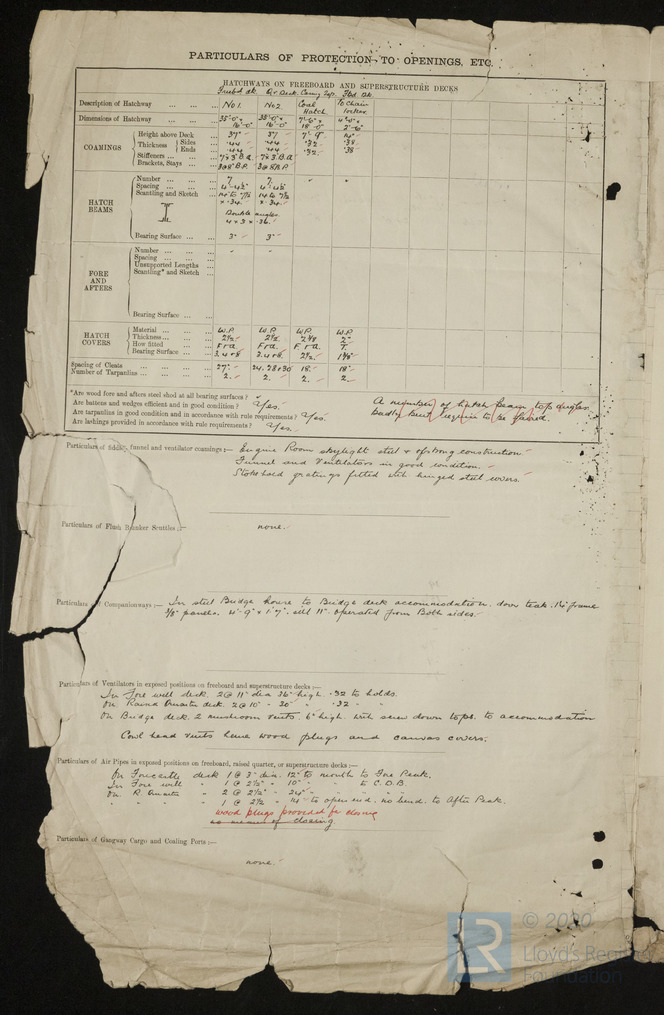 PARTICULARS OF PROTECTION TO OPENINGS, ETC.
HATCHWAYS ON FREEBOARD AND SUPERSTRUCTURE DECKS
Description of Hatchway ... ... ... No 1. No 2 Coal Hatch To Chain locker
Dimensions of Hatchway ... ... ... 35'-0" x 16'-0" 35'-0" x 16'-0" 7'-6" x 18'-0" 2'-6"
COAMINGS
Height above Deck ... 37" 37 7'-9"
Thickness { Sides ... .44 .44 .32 .38
Ends ... .44 .44 .32 .38
Stiffeners ... ... 7 x 3 B.A. 7 x 3 B.A
Brackets, Stays ... ...
HATCH BEAMS
Number ... ... ... 7 7
Spacing ... ... ... 4'-4½" 4'-4½"
Scantling and Sketch ... x .34 x .34
Double angles
4 x 3 x .36
Bearing Surface ... ... 3" 3"
FORE AND AFTERS
Number ... ... ... - -
Spacing ... ... ...
Unsupported Lengths ...
Scantling* and Sketch ...
Bearing Surface ... ...
HATCH COVERS
Material ... ... ... W.P. W.P. W.P. W.P.
Thickness ... ... ... 2½" 2½" 2"
How fitted ... ... F & a. F & a. F & a. T.
Bearing Surface ... ... 3.4 & 8 3.4 & 8. 2½"
Spacing of Cleats ... ... ... 27" 24.28 & 30 18" 18"
Number of Tarpaulins ... ... ... 2. 2. 2. 2.
*Are wood fore and afters steel shod at all bearing surfaces?
Are battens and wedges efficient and in good condition? Yes.
Are tarpaulins in good condition and in accordance with rule requirements? Yes.
Are lashings provided in accordance with rule requirements? Yes.
A number of hatch beam top angles
badly bent require to be faired.
Particulars of fiddley, funnel and ventilator coamings:— Engine Room skylight steel & of strong construction
Funnel and Ventilators in good condition.
Stokehold gratings fitted with hinged steel covers.
Particulars of Flush Bunker Scuttles :— none.
Particulars of Companionways :— In steel Bridge house to Bridge deck accommodation. door teak. 1¾" frame
panels. 4'-9" x 1'-7". sill 11" operated from Both sides.
Particulars of Ventilators in exposed positions on freeboard and superstructure decks :—
In Fore well deck. 2 @ 11" dia 36" high .32 to holds.
On Raised Quarter deck. 2 @ 10" " 30" " .32 " "
On Bridge deck. 2 mushroom vents. 6" high. with screw down tops. to accommodation
Cowl head vents have wood plugs and canvas covers.
Particulars of Air Pipes in exposed positions on freeboard, raised quarter, or superstructure decks :—
On Forecastle deck 1 @ 3" dia. 12" to mouth to Fore Peak.
In Fore well " 1 @ 2½" " 10" " " to C.D.B
On R. Quarter " 2 @ 2½" " 24" " " " "
" " " 1 @ 2½ " 14" to open end. no bend. to After Peak.
wood plugs provided for closing
no means of closing
Particulars of Gangway Cargo and Coaling Ports :—
none.
© 2020
Lloyd's Register
Foundation
LR